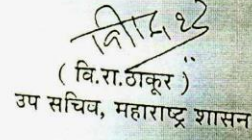 ( वि.रा.ठाकूर )
उप सचिव, महाराष्ट्र शासन